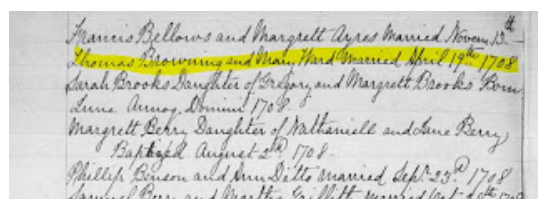 Francis Bellows and Margrett Ayres Married Novem 13th
Thomas Browning and Mary Ward Married April 19th 1708
Sarah Brooks Daughter of Gregory and Margrett Brooks Born
June Annoq Domini 1708.
Margrett Berry Daughter of Nathaniell and Jane Berry
Baptized August 2d 1708.
Phillip Benson and Ann Ditto married Sept 23d 1708
Samuel Berry and Martha married